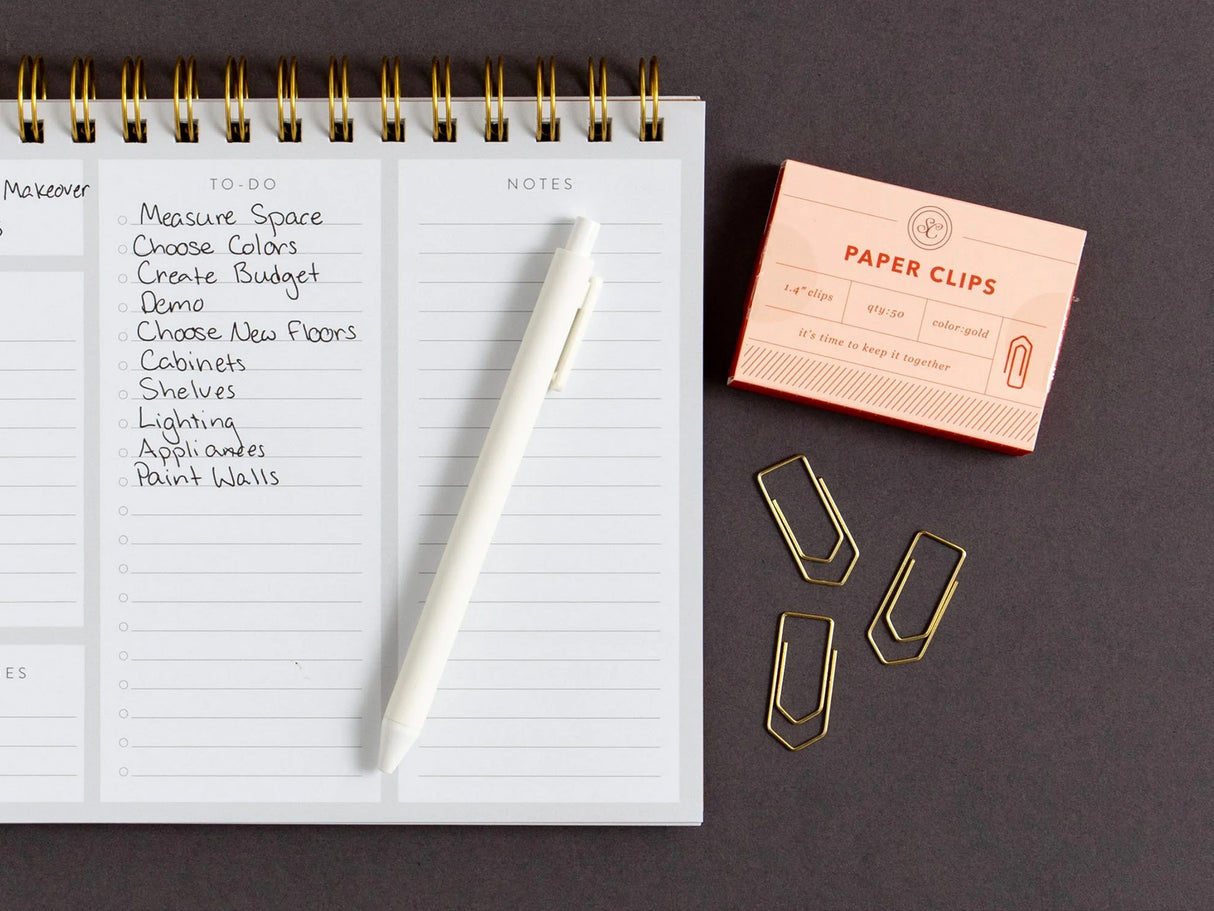 Makeover
TO-DO
Measure Space
Choose Colors
Create Budget
Demo
Choose New Floors
Cabinets
Shelves
Lighting
Appliances
Paint Walls
NOTES
ES
SC
PAPER CLIPS
1.4" clips
qty:50
color:gold
it's time to keep it together